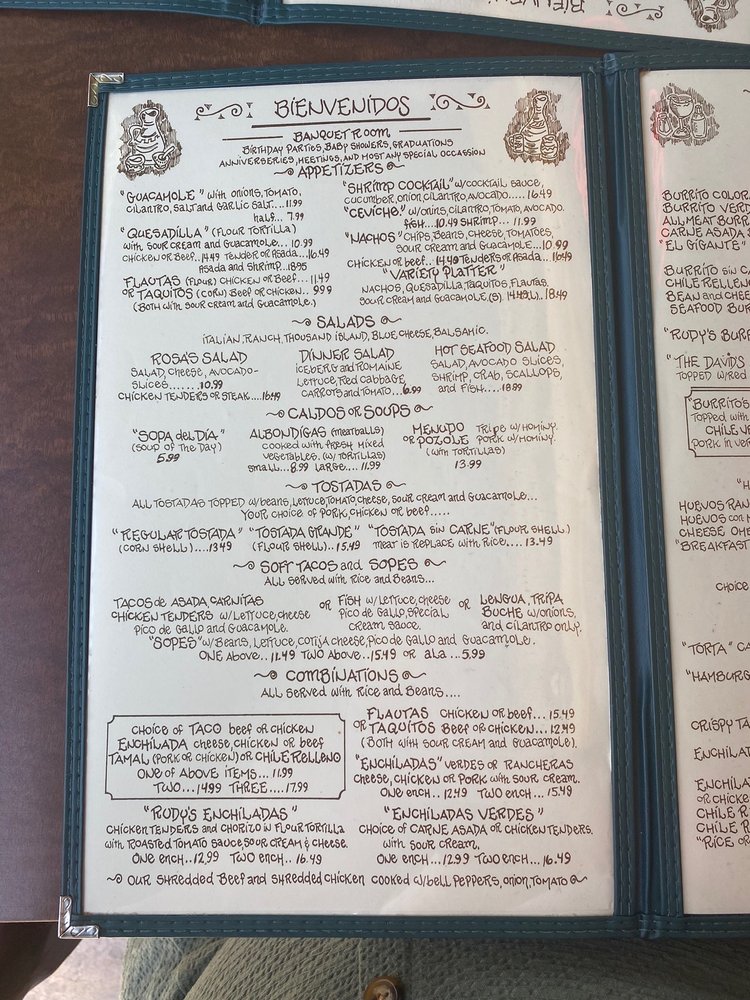 BIENVENIDOS
BANQUET ROOM
BIRTHDAY PARTIES, BABY SHOWERS, GRADUATIONS
ANNIVERSERIES, MEETINGS, AND MOST ANY SPECIAL OCCASSION
APPETIZERS
"GUACAMOLE" with ONIONS, TOMATO,
CILANTRO, SALT and GARLIC SALT....11.99
half... 7.99
"QUESADILLA" (FLOUR TORTILLA)
with SOUR CREAM and GUACAMOLE... 10.99
CHICKEN OR BEEF..14.49 TENDER OR ASADA...16.49
ASADA and SHRIMP...18.95
FLAUTAS (FLOUR) CHICKEN OR BEEF... 11.49
OR TAQUITOS (CORN) BEEF OR CHICKEN.. 9.99
(BOTH with SOUR CREAM and GUACAMOLE.)
"SHRIMP COCKTAIL" w/COCKTAIL SAUCE,
CUCUMBER, ONION, CILANTRO, AVOCADO.....16.49
"CEVICHE." w/ONIONS, CILANTRO, TOMATO, AVOCADO.
FISH....10.49 SHRIMP... 11.99
"NACHOS" CHIPS, BEANS, CHEESE, TOMATOES,
SOUR CREAM and GUACAMOLE...10.99
CHICKEN OR BEEF.. 14.49 TENDERS OR ASADA... 16.49
"VARIETY PLATTER"
NACHOS, QUESADILLA, TAQUITOS, FLAUTAS,
SOUR CREAM and GUACAMOLE, (S). 14.49(L).. 18.49
SALADS
ITALIAN, RANCH, THOUSAND ISLAND, BLUE CHEESE, BALSAMIC.
ROSA'S SALAD
SALAD, CHEESE, AVOCADO-
SLICES.......10.99
CHICKEN TENDERS OR STEAK....16.49
DINNER SALAD
ICEBERG and ROMAINE
LETTUCE, RED CABBAGE,
CARROTS and TOMATO...6.99
HOT SEAFOOD SALAD
SALAD, AVOCADO SLICES,
SHRIMP, CRAB, SCALLOPS,
and FISH.... 18.89
CALDOS OR SOUPS
"SOPA del DIA"
(SOUP OF THE DAY)
5.99
ALBONDIGAS (MEATBALLS)
COOKED with FRESH MIXED
VEGETABLES. (W/ TORTILLAS)
SMALL...8.99 LARGE.... 11.99
MENUDO TRIPE W/HOMINY.
OR POZOLE PORK W/HOMINY.
(WITH TORTILLAS)
13.99
TOSTADAS
ALL TOSTADAS TOPPED w/BEANS, LETTUCE, TOMATO, CHEESE, SOUR CREAM and GUACAMOLE...
YOUR CHOICE OF PORK, CHICKEN OR BEEF.....
"REGULAR TOSTADA"
(CORN SHELL)....13.49
"TOSTADA GRANDE"
(FLOUR SHELL).. 15.49
"TOSTADA SIN CARNE" (FLOUR SHELL)
MEAT IS REPLACE with RICE.... 13.49
SOFT TACOS and SOPES
ALL SERVED with RICE and BEANS...
TACOS de ASADA, CARNITAS
CHICKEN TENDERS w/LETTUCE, CHEESE
PICO de GALLO and GUACAMOLE.
OR FISH w/LETTUCE, CHEESE
PICO de GALLO, SPECIAL
CREAM SAUCE.
OR LENGUA, TRIPA
BUCHE w/ONIONS,
and CILANTRO ONLY.
"SOPES" w/BEANS, LETTUCE, COTIJA CHEESE, PICO de GALLO and GUACAMOLE.
ONE ABOVE.. 11.49 TWO ABOVE..15.49 OR ALA ...5.99
COMBINATIONS
ALL SERVED with RICE and BEANS....
CHOICE of TACO BEEF OR CHICKEN
ENCHILADA CHEESE, CHICKEN OR BEEF
TAMAL (PORK OR CHICKEN) OR CHILE RELLENO
ONE of ABOVE ITEMS... 11.99
TWO...14.99 THREE....17.99
FLAUTAS CHICKEN OR BEEF... 15.49
OR TAQUITOS BEEF OR CHICKEN... 12.49
(BOTH WITH SOUR CREAM and GUACAMOLE).
"ENCHILADAS" VERDES OR RANCHERAS
CHEESE, CHICKEN OR PORK with SOUR CREAM.
ONE ENCH.. 12.49 TWO ENCH... 15.49
"RUDY'S ENCHILADAS"
CHICKEN TENDERS and CHORIZO IN FLOUR TORTILLA
with ROASTED TOMATO SAUCE, SOUR CREAM & CHEESE.
ONE ENCH..12.99 TWO ENCH.. 16.49
"ENCHILADAS VERDES"
CHOICE of CARNE ASADA OR CHICKEN TENDERS.
with SOUR CREAM.
ONE ENCH...12.99 TWO ENCH...16.49
OUR SHREDDED BEEF and SHREDDED CHICKEN COOKED w/BELL PEPPERS, ONION, TOMATO
BURRITO
BURRITO
ALL MEAT
CARNE ASADA
"EL GIGANTE"
BURRITO SIN
CHILE
BEAN and
SEAFOOD
"RUDY'S
"THE DAVID'S
TOPPED w/RED
TOPPED with
PORK IN
HUEVOS
HUEVOS CON
CHEESE
"BREAKFAST
CHOICE
"TORTA"
CRISPY
"RICE OR